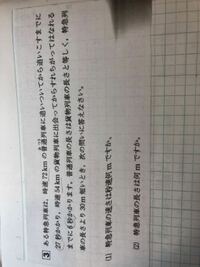 3 ある特急列車は、時速72kmの普通列車に追いついてから追いこすまでに
27秒かかり、時速54kmの貨物列車に出会ってからすれちがってはなれる
までに6秒かかります。普通列車の長さは貨物列車の長さと等しく、特急列
車の長さより30m短いとき、次の問いに答えなさい。
(1) 特急列車の速さは秒速何mですか。
(2) 特急列車の長さは何mですか。